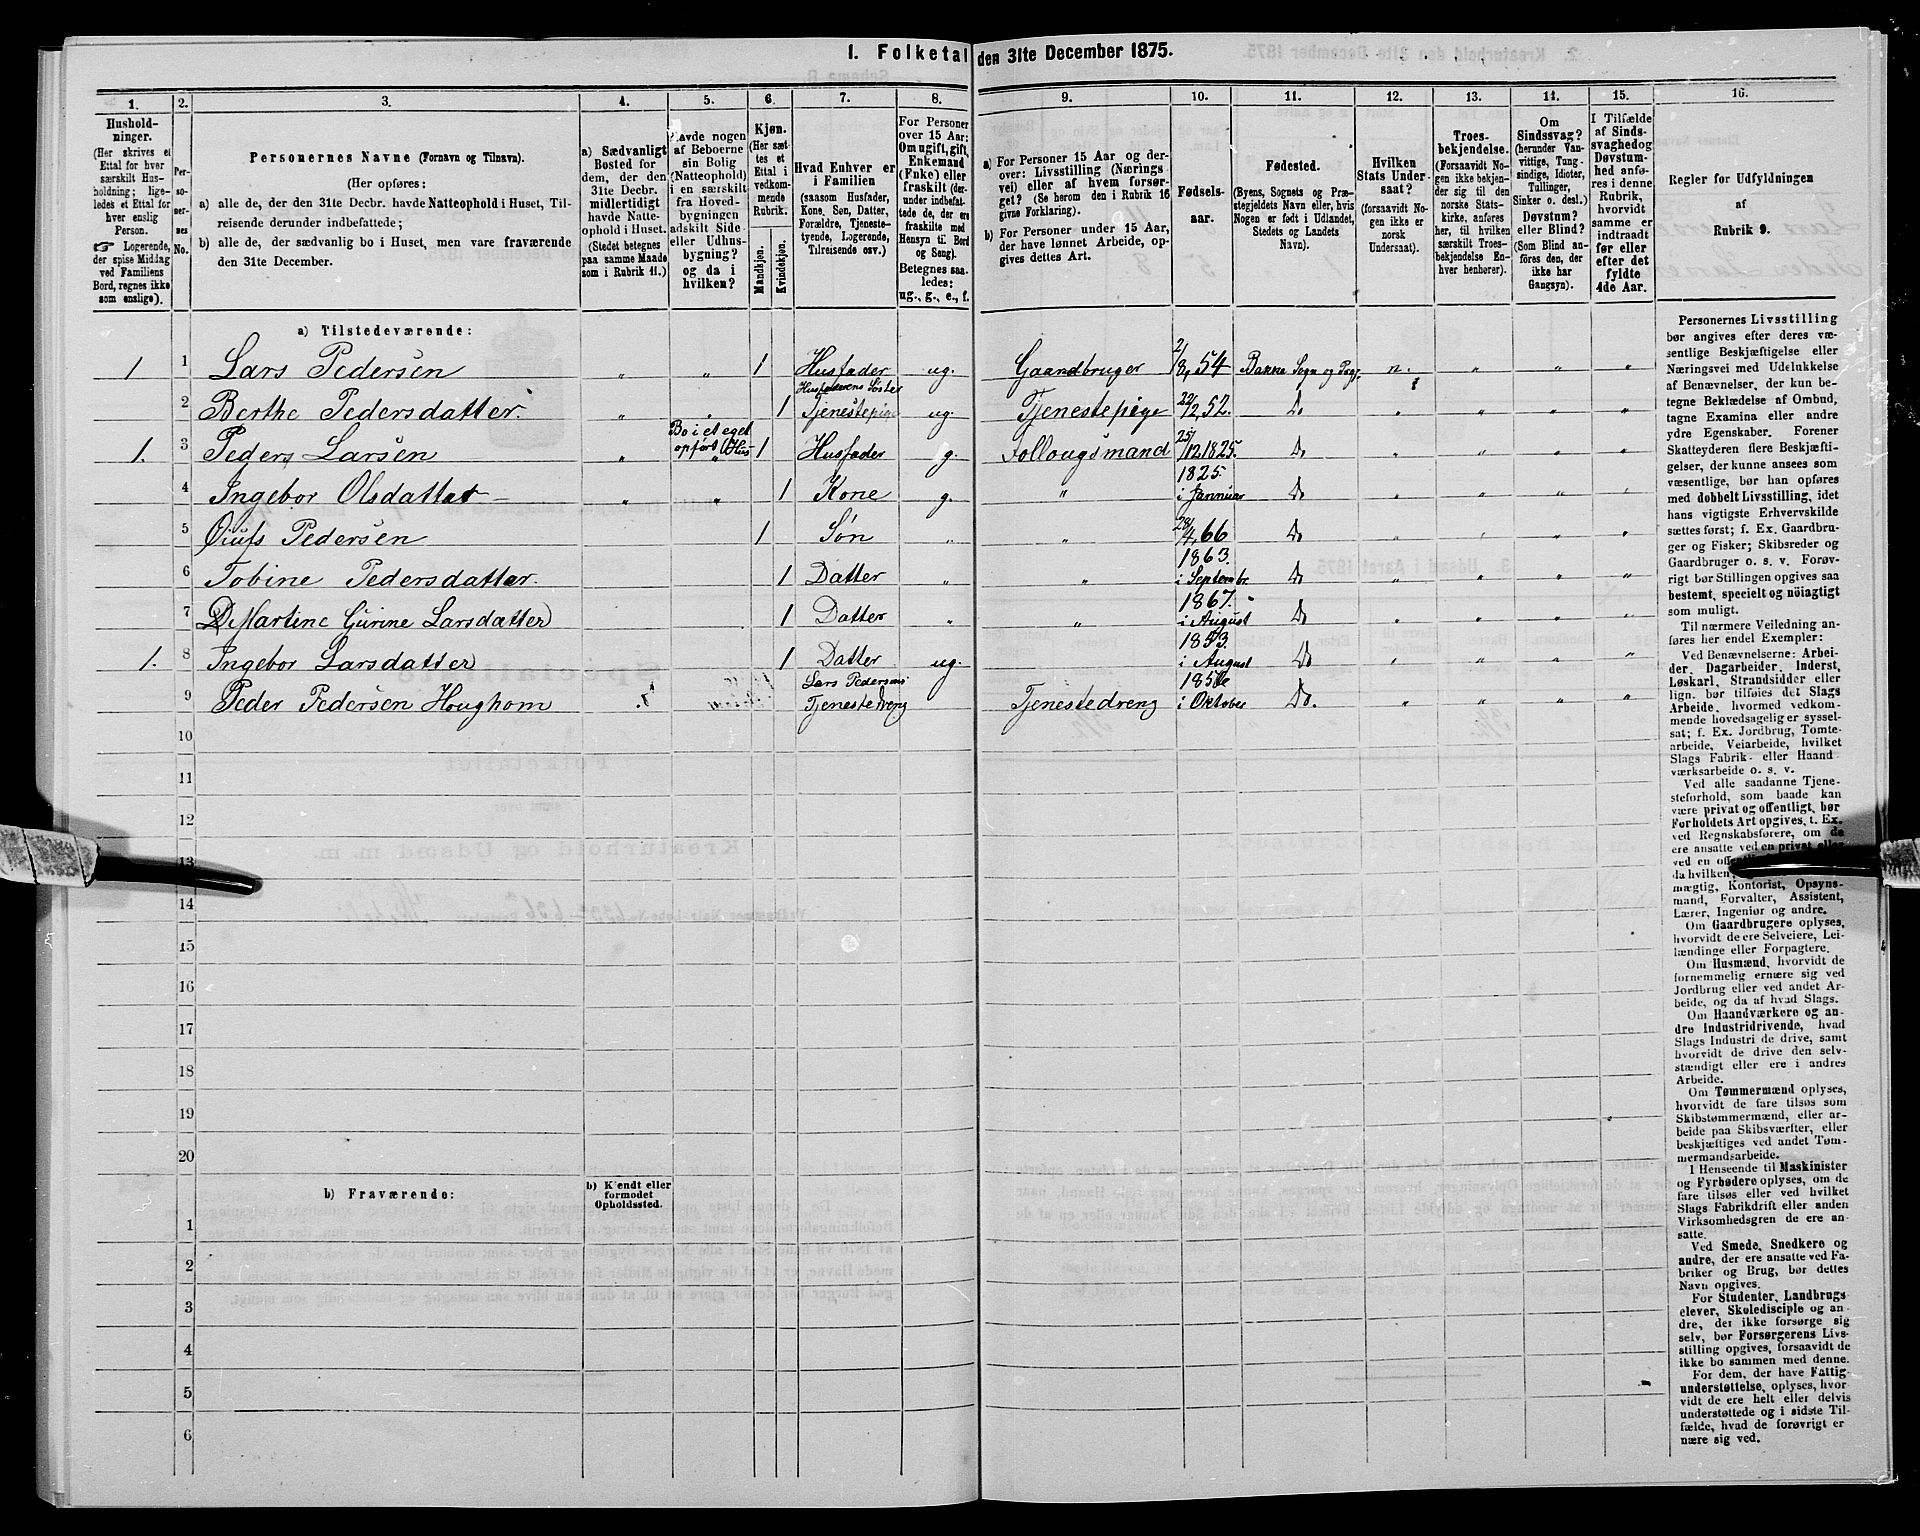 1. Folketal den 31te December 1875.
1. 2. 3. 4. 5. 6. 7. 8. 9. 10. 11. 12. 13. 14. 15. 16.
Hushold-
ninger.
(Her skrives et
Ettal for hver
særskilt Hus-
holdning; lige-
ledes et Ettal for
hver enslig
Person.
☞ Logerende,
der spise Middag
ved Familiens
Bord, regnes ikke
som enslige).
Per-
so-
ner-
nes
No.
Personernes Navne (Fornavn og Tilnavn).
(Her opføres:
a) alle de, der den 31te Decbr. havde Natteophold i Huset, Til-
reisende derunder indbefattede;
b) alle de, der sædvanlig bo i Huset, men vare fraværende
den 31te December.
a) Sædvanligt
Bosted for
dem, der den
31te Decbr.
midlertidigt
havde Natte-
ophold i Huset.
(Stedet betegnes
paa samme Maade
som i Rubrik 11.)
Havde nogen
af Beboerne
sin Bolig
(Natteophold)
i en særskilt
fra Hoved-
bygningen
adskilt Side-
eller Udhus-
bygning?
og da i
hvilken?
Kjøn.
(Her sæt-
tes et
Ettal i
vedkom-
mende
Rubrik.
Mandkjøn.
Kvindekjøn.
Hvad Enhver er
i Familien
(saasom Husfader,
Kone, Søn, Datter,
Forældre, Tjeneste-
tyende, Logerende,
Tilreisende osv.)
For Personer
over 15 Aar:
Om ugift, gift,
Enkemand
(Enke) eller
fraskilt (der-
under indbefat-
tede de, der ere
fraskilte med
Hensyn til Bord
og Seng).
Betegnes saa-
ledes:
ug., g., e., f.
a) For Personer 15 Aar og der-
over: Livsstilling (Nærings-
vei) eller af hvem forsør-
get? (Se herom den i Rubrik 16
givne Forklaring).
b) For Personer under 15 Aar,
der have lønnet Arbeide, op-
gives dettes Art.
Fødsels-
aar.
Fødested.
(Byens, Sognets og Præ-
stegjeldets Navn eller, hvis
Nogen er født i Udlandet,
Stedets og Landets
Navn).
Hvilken
Stats Under-
saat?
(forsaavidt No-
gen ikke er
norsk
Undersaat).
Troes-
bekjendelse.
(Forsaavidt No-
gen ikke bekjen-
der sig til den
norske Stats-
kirke, anføres
her, til hvilken
særskilt Troes-
bekjendelse En-
hver henhører).
Om
Sindssvag?
(herunder Van-
vittige, Tung-
sindige, Idioter,
Tullinger,
Sinker o. desl.)
Døvstum?
eller Blind?
(Som Blind an-
føres den, der
ikke har
Gangsyn).
I Tilfælde
af Sinds-
svaghed og
Døvstum-
hed anfø-
res i denne
Rubrik,
hvorvidt
samme er
indtraadt
før eller
efter det
fyldte
4de Aar.
Regler for Udfyldningen
af
Rubrik 9.
a) Tilstedeværende:
1 1 Lars Pedersen „ „ 1 Husfader ug. Gaardbruger 2/8 54 Bakke Sogn og Pgj. n. „ „ „
Husfaderens Søster
2 Berthe Pedersdatter „ „ 1 Tjenestepige ug. Tjenestepige 22/12 52. Do „ „ „ „
Bo i et eget
1. 3 Peders Larsen „ opført Hus 1 Husfader g. Follougsmand 25/12 1825. Do „ „ „ „
1825.
4 Ingebor Olsdatter „ „ 1 Kone g. „ i Jannuar Do „ „ „
5 Pedersen 1 Søn „ „ 28/4 66 Do „ „ „
1863.
6 Tobine Pedersdatter. 1 Datter „ „ i Septembr. Do „ „ „ „
1867.
7 Martine Gurine Larsdatter 1 Datter „ „ i August Do „ „ „ „
1853.
1. 8 Ingebor Larsdatter 1 Datter ug. i August Do „ „ „ „
Lars Pedersens
9 Peder Pedersen Houghom Tjenestedreng Tjenestedreng i Oktober Do. „ „ „ „
10
11
12
13
14
15
16
17
18
19
20
b) Fraværende:
b) Kjendt eller
formodet
Opholdssted.
1
2
3
4
5
6
Personernes Livsstilling
bør angives efter deres væ-
sentlige Beskjæftigelse eller
Næringsvei med Udelukkelse
af Benævnelser, der kun be-
tegne Beklædelse af Ombud,
tagne Examina eller andre
ydre Egenskaber. Forener
Skatteyderen flere Beskjæfti-
gelser, der kunne ansees som
væsentlige, bør han opføres
med dobbelt Livsstilling, idet
hans vigtigste Erhvervskilde
sættes først; f. Ex. Gaardbru-
ger og Fisker; Skibsreder og
Gaardbruger o. s. v. Forøv-
rigt bør Stillingen opgives saa
bestemt, specielt og nöiagtigt
som muligt.
Til nærmere Veiledning an-
føres her endel Exempler:
Ved Benævnelserne: Arbei-
der, Dagarbeider, Inderst,
Løskarl, Strandsidder eller
lign. bør tilføies det Slags
Arbeide, hvormed vedkom-
mende hovedsagelig er syssel-
sat; f. Ex. Jordbrug, Tomte-
arbeide, Veiarbeide, hvilket
Slags Fabrik- eller Haand-
værksarbeide o. s. v.
Ved alle saadanne Tjene-
steforhold, som baade kan
være privat og offentligt, bør
Forholdets Art opgives, t. Ex.
ved Regnskabsførere, om de
ere ansatte ved en privat eller
ved en
da hvilken;
mægtig, Kontorist, Opsyns-
mand, Forvalter, Assistent,
Lærer, Ingeniør og andre.
Om Gaardbrugere oplyses,
hvorvidt de ere Selveiere, Lei-
lændinge eller Forpagtere.
Om Husmænd, hvorvidt de
fornemmelig ernære sig ved
Jordbrug eller ved andet Ar-
beide, og da af hvad Slags.
Om Haandværkere og an-
dre Industridrivende, hvad
Slags Industri de drive, samt
hvorvidt de drive den selv-
stændigt eller ere i andres
Arbeide.
Om Tømmermænd oplyses,
hvorvidt de fare tilsøs som
Skibstømmermænd, eller ar-
beide paa Skibsværfter, eller
beskjæftiges ved andet Tøm-
mermandsarbeide.
I Henseende til Maskinister
og Fyrbødere oplyses, om de
fare tilsøs eller ved hvilket
Slags Fabrikdrift eller anden
Virksomhedsgren de ere an-
satte.
Ved Smede, Snedkere og
andre, der ere ansatte ved Fa-
briker og Brug, bør dettes
Navn opgives.
For Studenter, Landbrugs-
elever, Skoledisciple og an-
dre, der ikke forsørge sig
selv, bør Forsørgerens Livs-
stilling opgives, forsaavidt de
ikke bo sammen med denne.
For dem, der have Fattig-
understøttelse, oplyses, hvor-
vidt de ere helt eller delvis
understøttede og i sidste Til-
fælde, hvad de forøvrigt er-
nære sig ved.